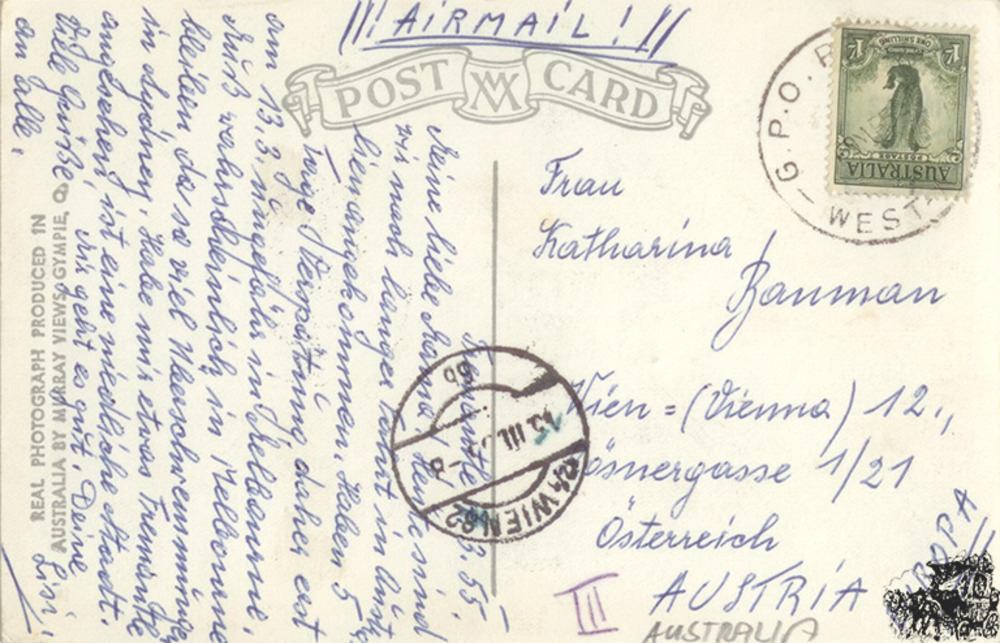 !!! AIRMAIL! !!
POST CARD
G.P.O.
WEST
AUSTRALIA
POSTAGE
ONE SHILLING
1/-
1/-
3.55.
Meine liebe Mama! Heute sind
wir nach langer Fahrt in Austra-
lien angekommen. Haben 5
Tage Verspätung, daher erst
am 13.3. ungefähr in Melbourne.
Muß wahrscheinlich in Melbourne
bleiben, da so viel Überschwemmung
in Sydney. Habe mir etwas Fremantle
angesehen, ist eine niedliche Stadt.
Viele Grüße, mir geht es gut, Deine
an alle. Lisi
REAL PHOTOGRAPH PRODUCED IN
AUSTRALIA BY MURRAY VIEWS, GYMPIE, Q.
Frau
Katharina
Bauman
Wien = (Vienna) 12.,
1/21
Österreich
AUSTRIA
AUSTRALIA
III
WIEN 82
III